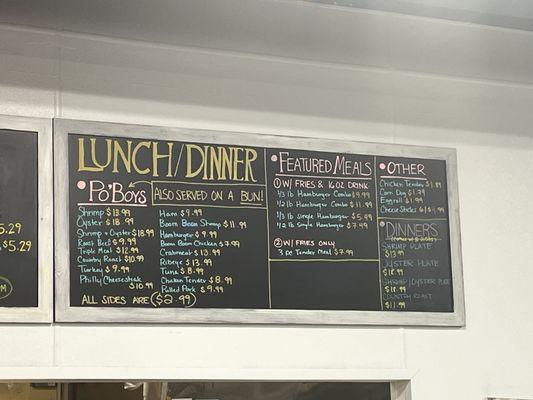 5.29
$5.29
LUNCH/DINNER
PO'BOYS
ALSO SERVED ON A BUN!
Shrimp $13.99
Oyster $18.99
Shrimp + Oyster $18.99
Roast Beef $9.99
Triple Meat $12.99
Country Roast $10.99
Turkey $9.99
Philly Cheesesteak
$10.99
Ham $9.99
Boom Boom Shrimp $11.99
Hamburger $9.99
Boom Boom Chicken $7.99
Crabmeat $13.99
Ribeye $13.99
Tuna $8.99
Chicken Tender $8.99
Pulled Pork $9.99
ALL SIDES ARE $2.99
FEATURED MEALS
① W/ FRIES & 16OZ DRINK
1/3 lb Hamburger Combo $9.99
1/2 lb Hamburger Combo $11.99
1/3 lb Single Hamburger $5.99
1/2 lb Single Hamburger $7.99
② W/ FRIES ONLY
3 pc Tender Meal $7.99
OTHER
Chicken Tender $1.89
Corn Dog $1.79
Eggroll $1.99
Cheese Sticks
DINNERS
SHRIMP PLATE
$13.99
OYSTER PLATE
$18.99
SHRIMP/OYSTER PLATE
$18.99
COUNTRY ROAST
$11.99